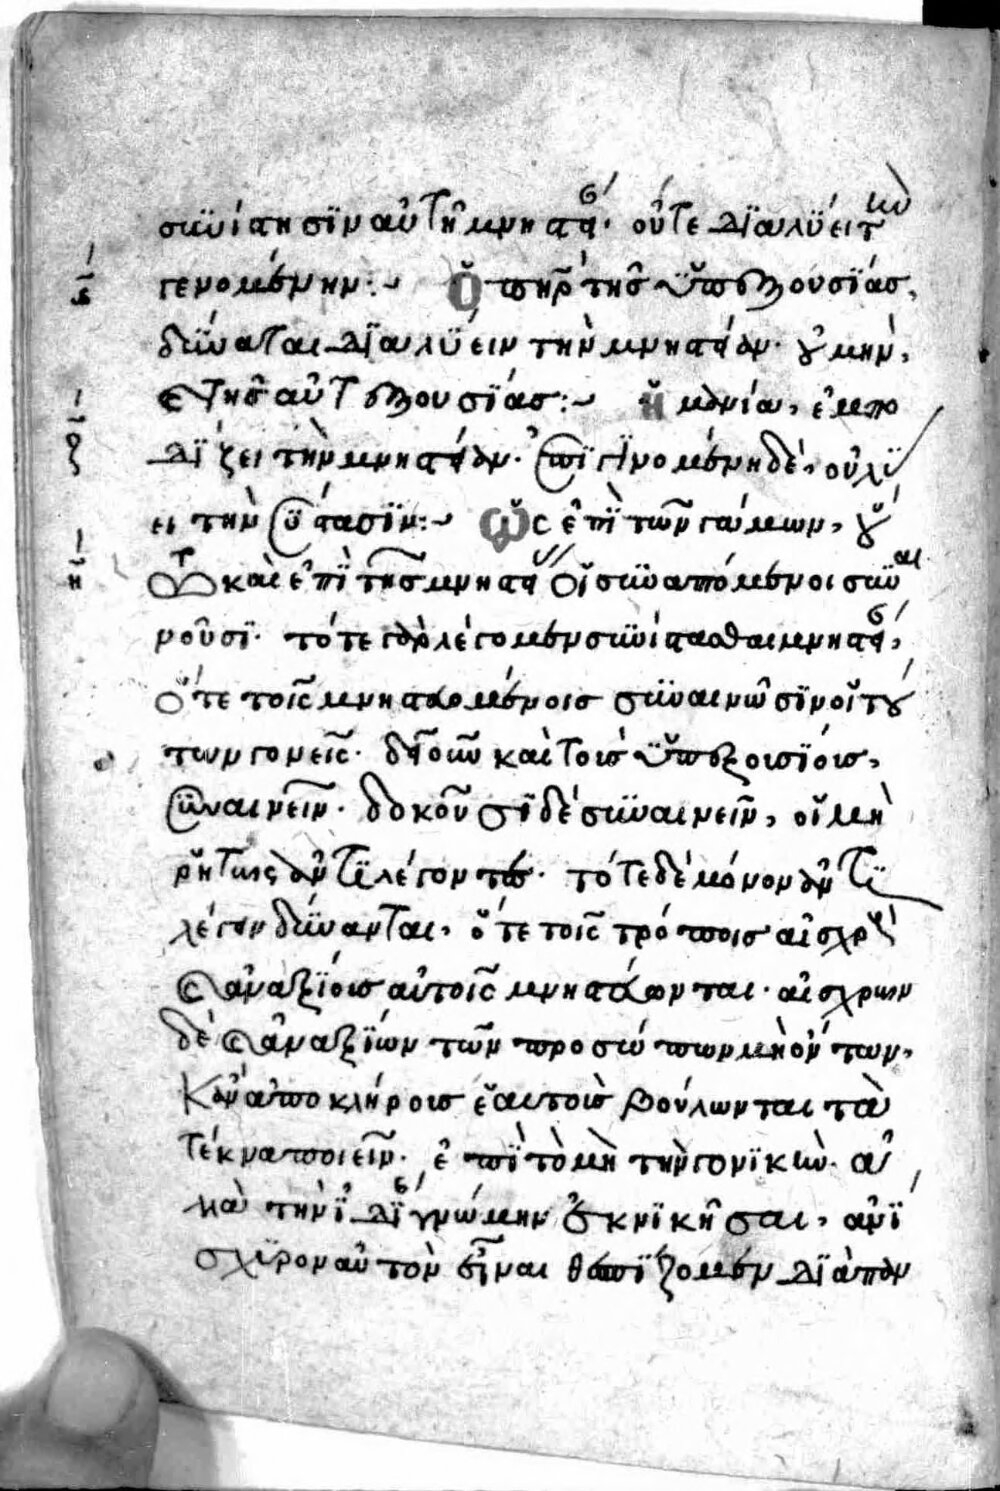 συνίστησιν αὐτὴ μνηστείας· οὔτε διαλύει τὴν
γενομένην:~ Ὁ πατὴρ τῆς ὑπεξουσίας,
ιϛ
δύναται διαλύειν τὴν μνηστείαν· οὐ μὴν,
καὶ τῆς αὐτεξουσίας:~ Ἡ μανία, ἐμπο
ιζ
δίζει τὴν μνηστείαν· ἐπιγινομένη δὲ, οὐ λύ
ει τὴν σύστασιν:~ Ὡς ἐπὶ τῶν γάμων, οὕ
ιη
τω καὶ ἐπὶ τῆς μνηστείας οἱ συναπτόμενοι συναι
νοῦσι· τότε γὰρ λέγομεν συνίστασθαι μνηστείας,
ὅτε τοῖς μνηστευομένοις συναινῶσιν οἱ τού
των γονεῖς· δεῖ οὖν καὶ τοῖς ὑπεξουσίοις,
συναινεῖν· δοκοῦσι δὲ συναινεῖν, οἱ μὴ
ῥητῶς ἀντιλέγοντες· τότε δὲ μόνον ἀντι
λέγειν δύνανται, ὅτε τοῖς τρόποις αἰσχροὶ
καὶ ἀναξίοις αὐτοῖς μνηστεύωνται· αἰσχρῶν
δὲ καὶ ἀναξίων τῶν προσώπων μὴ ὄντων,
κἂν ἀποκλήροις ἑαυτοῖς βούλωνται τὰ
τέκνα ποιεῖν· ἐπὶ τὸ μὴ τὴν γονικὴν ἀλ
λὰ τὴν ἰδίας γνώμην ἐκνικῆσαι, ἀνί
σχυρον αὐτὸν εἶναι θεσπίζομεν διάταξιν